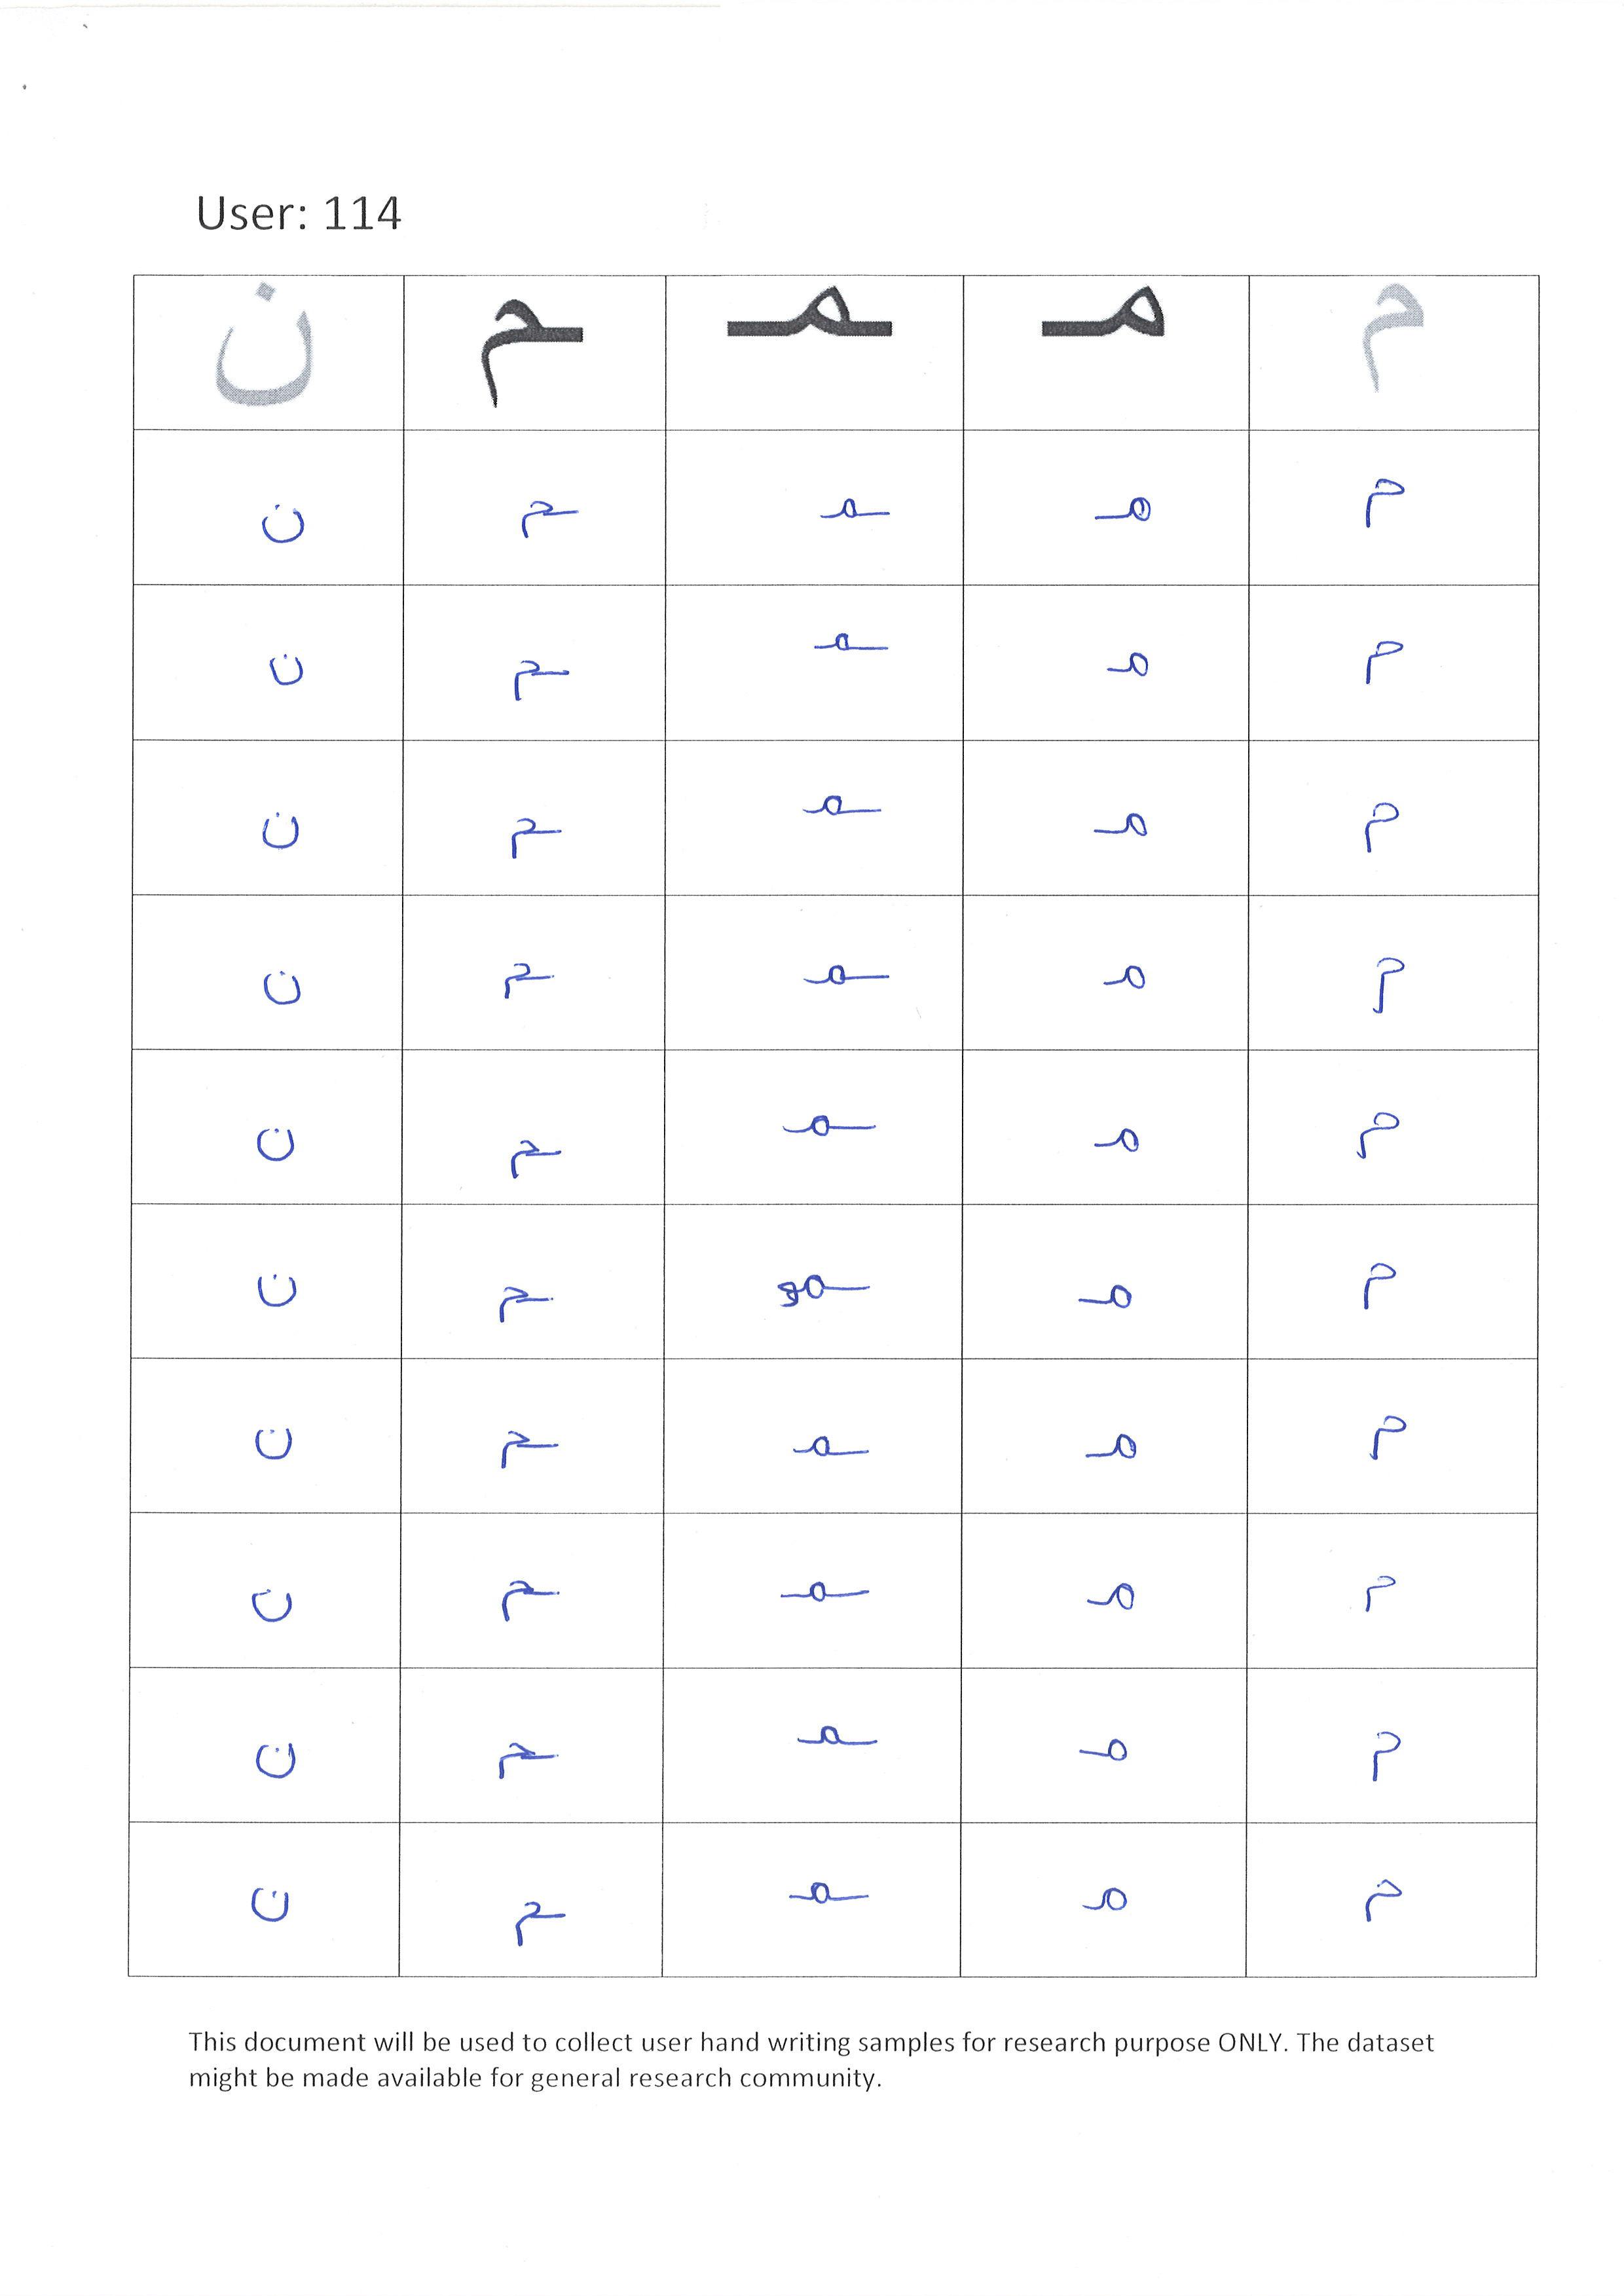 User: 114
م مـ ـمـ ـم ن
م مـ ـمـ ـم ن
م مـ ـمـ ـم ن
م مـ ـمـ ـم ن
م مـ ـمـ ـم ن
م مـ ـمـ ـم ن
م مـ ـم ن
م مـ ـمـ ـم ن
م مـ ـمـ ـم ن
م مـ ـمـ ـم ن
م مـ ـمـ ـم ن
This document will be used to collect user hand writing samples for research purpose ONLY. The dataset
might be made available for general research community.